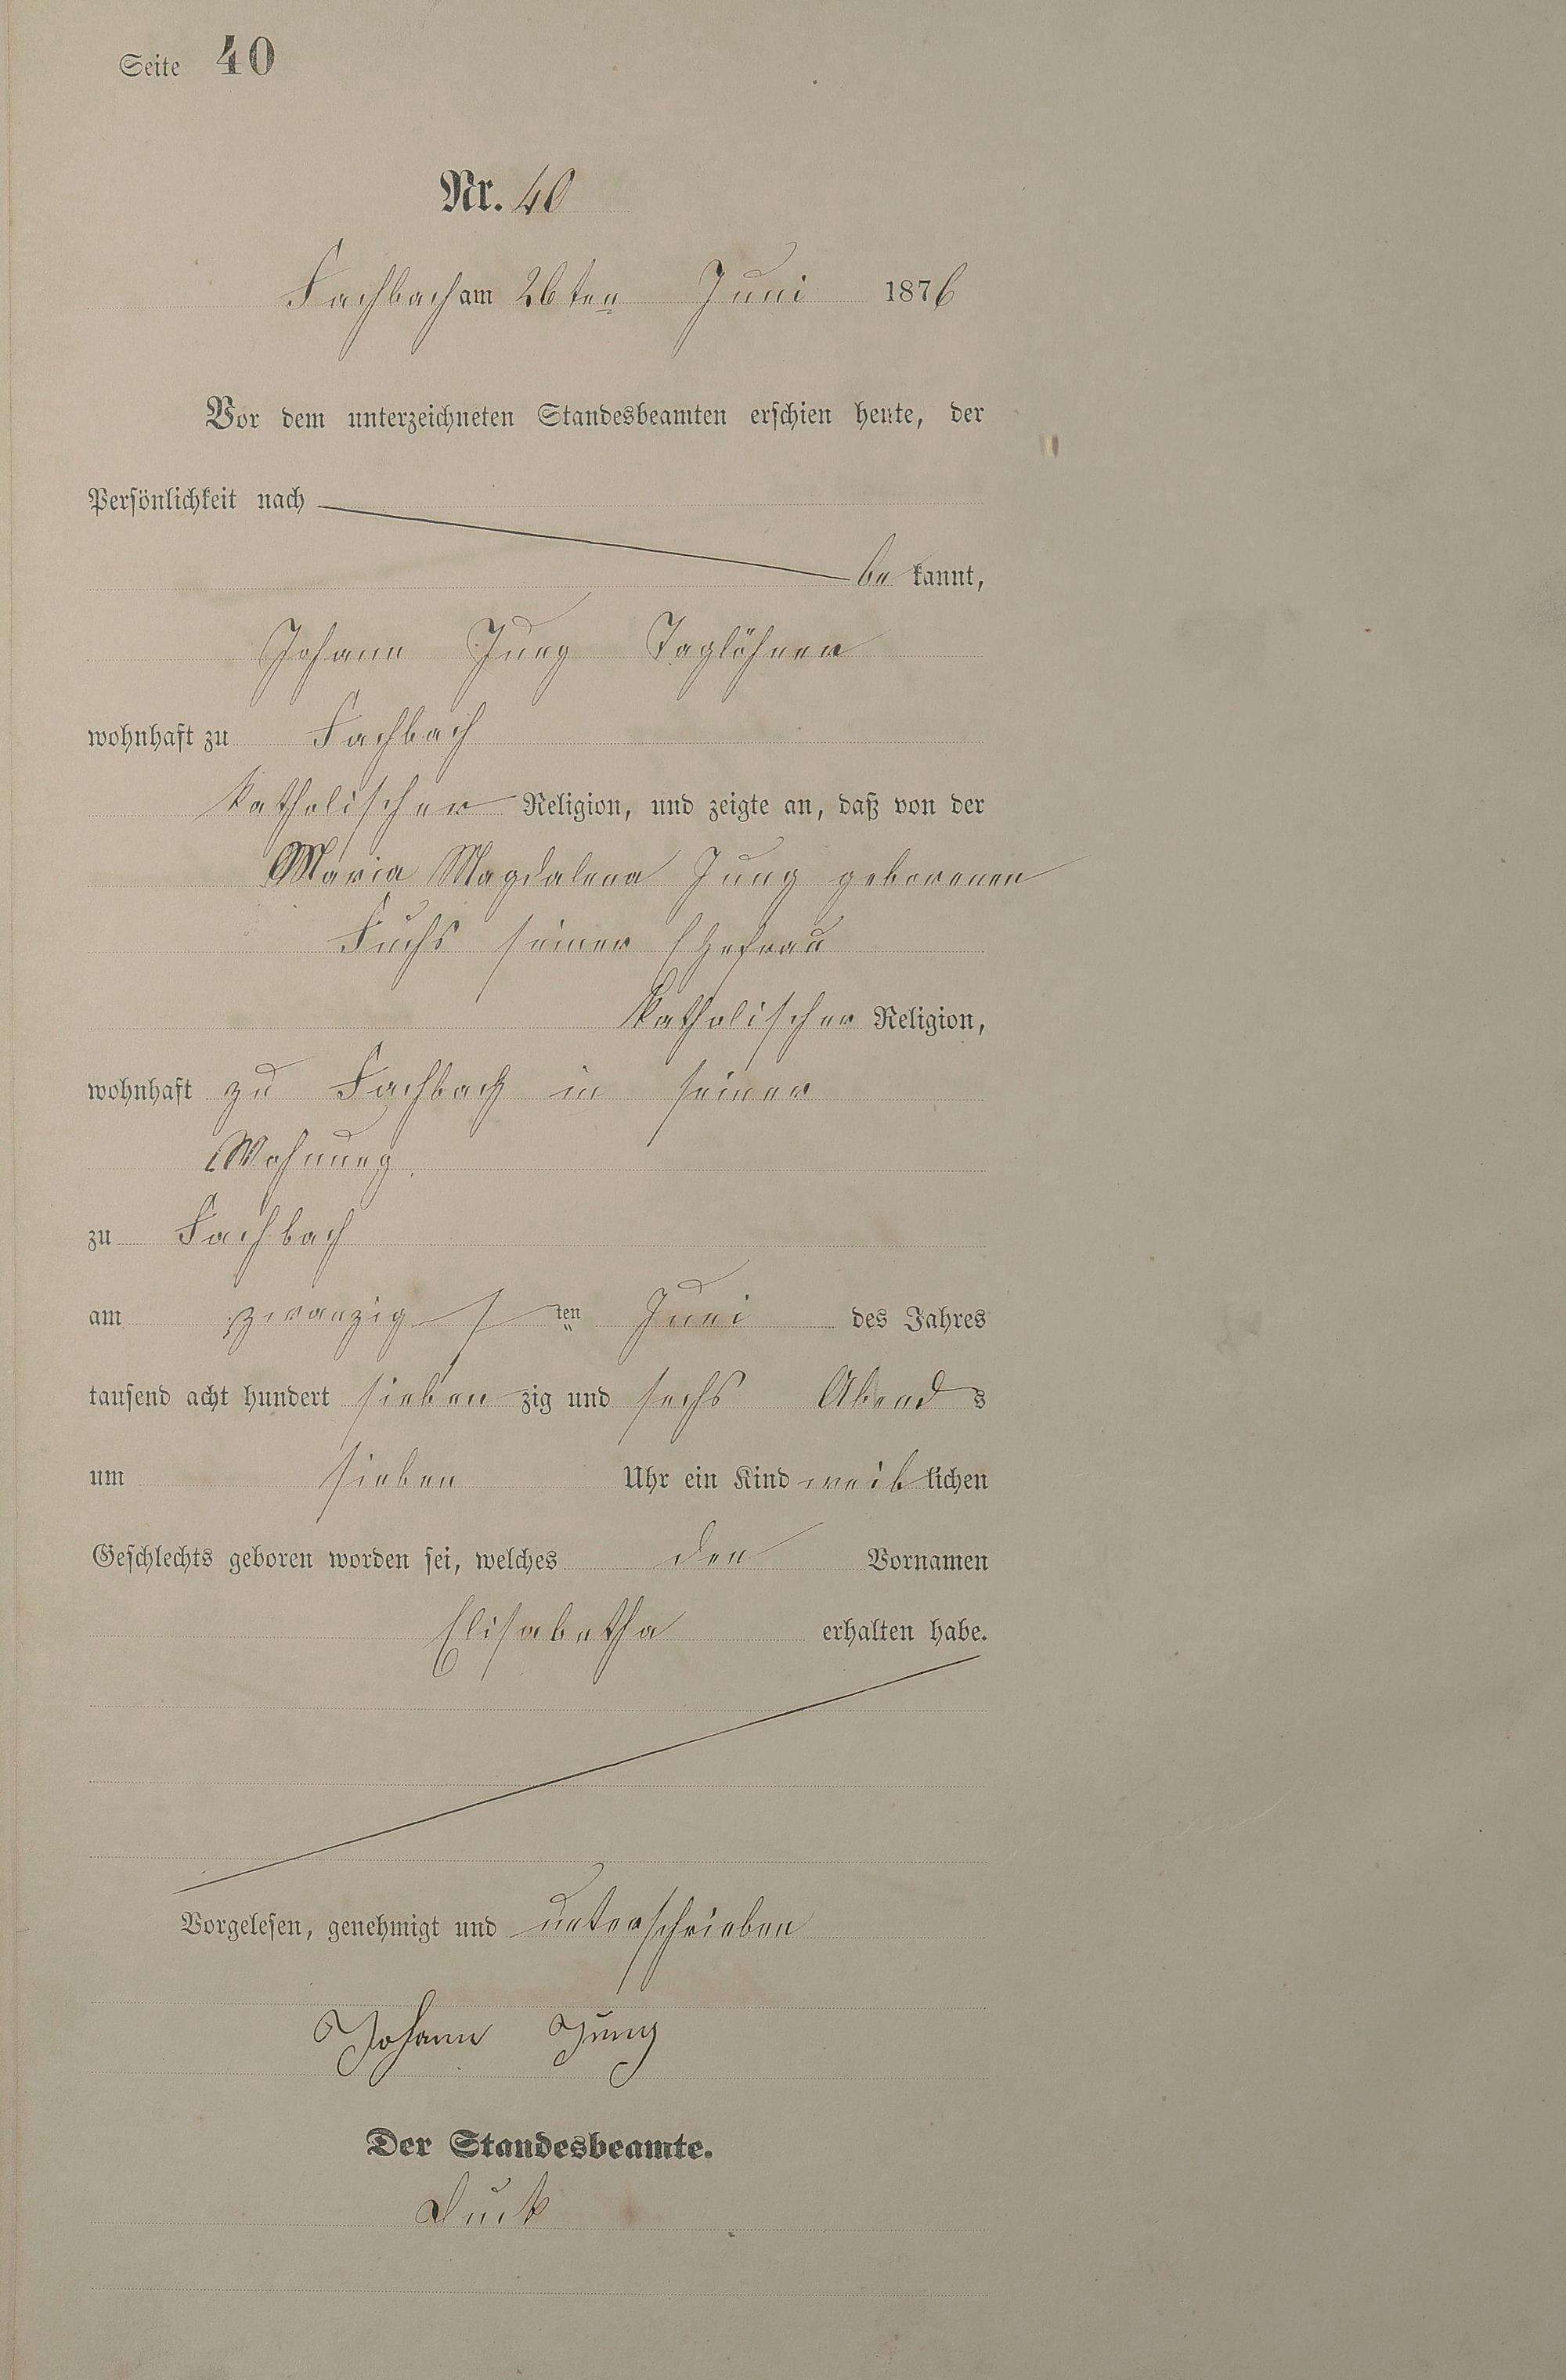 Seite 40
Nr. 40
Fachbach am 26ten Juni 1876
Vor dem unterzeichneten Standesbeamten erschien heute, der
Persönlichkeit nach
be kannt,
Johann Jung Taglöhner
wohnhaft zu Fachbach
katholischer Religion, und zeigte an, daß von der
Maria Magdalena Jung geborenen
Fuchs seiner Ehefrau
katholischer Religion,
wohnhaft zu Fachbach in seiner
Wohnung
zu Fachbach
am zwanzig s ten Juni des Jahres
tausend acht hundert sieben zig und sechs Abend s
um sieben Uhr ein Kind weib lichen
Geschlechts geboren worden sei, welches den Vornamen
Elisabetha erhalten habe.
Vorgelesen, genehmigt und unterschrieben
Johann Jung
Der Standesbeamte.